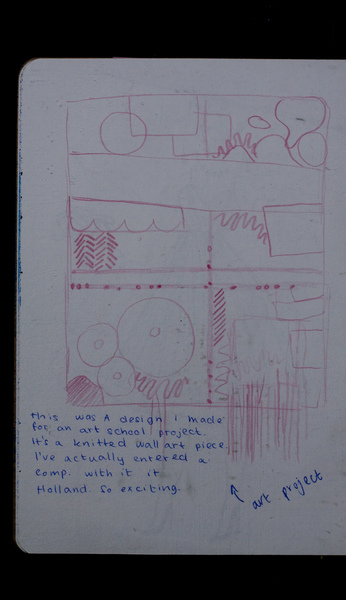 this was A design i made
for an art school project.
It's a knitted wall art piece.
I've actually entered a
comp. with it it
Holland. So exciting.
art project